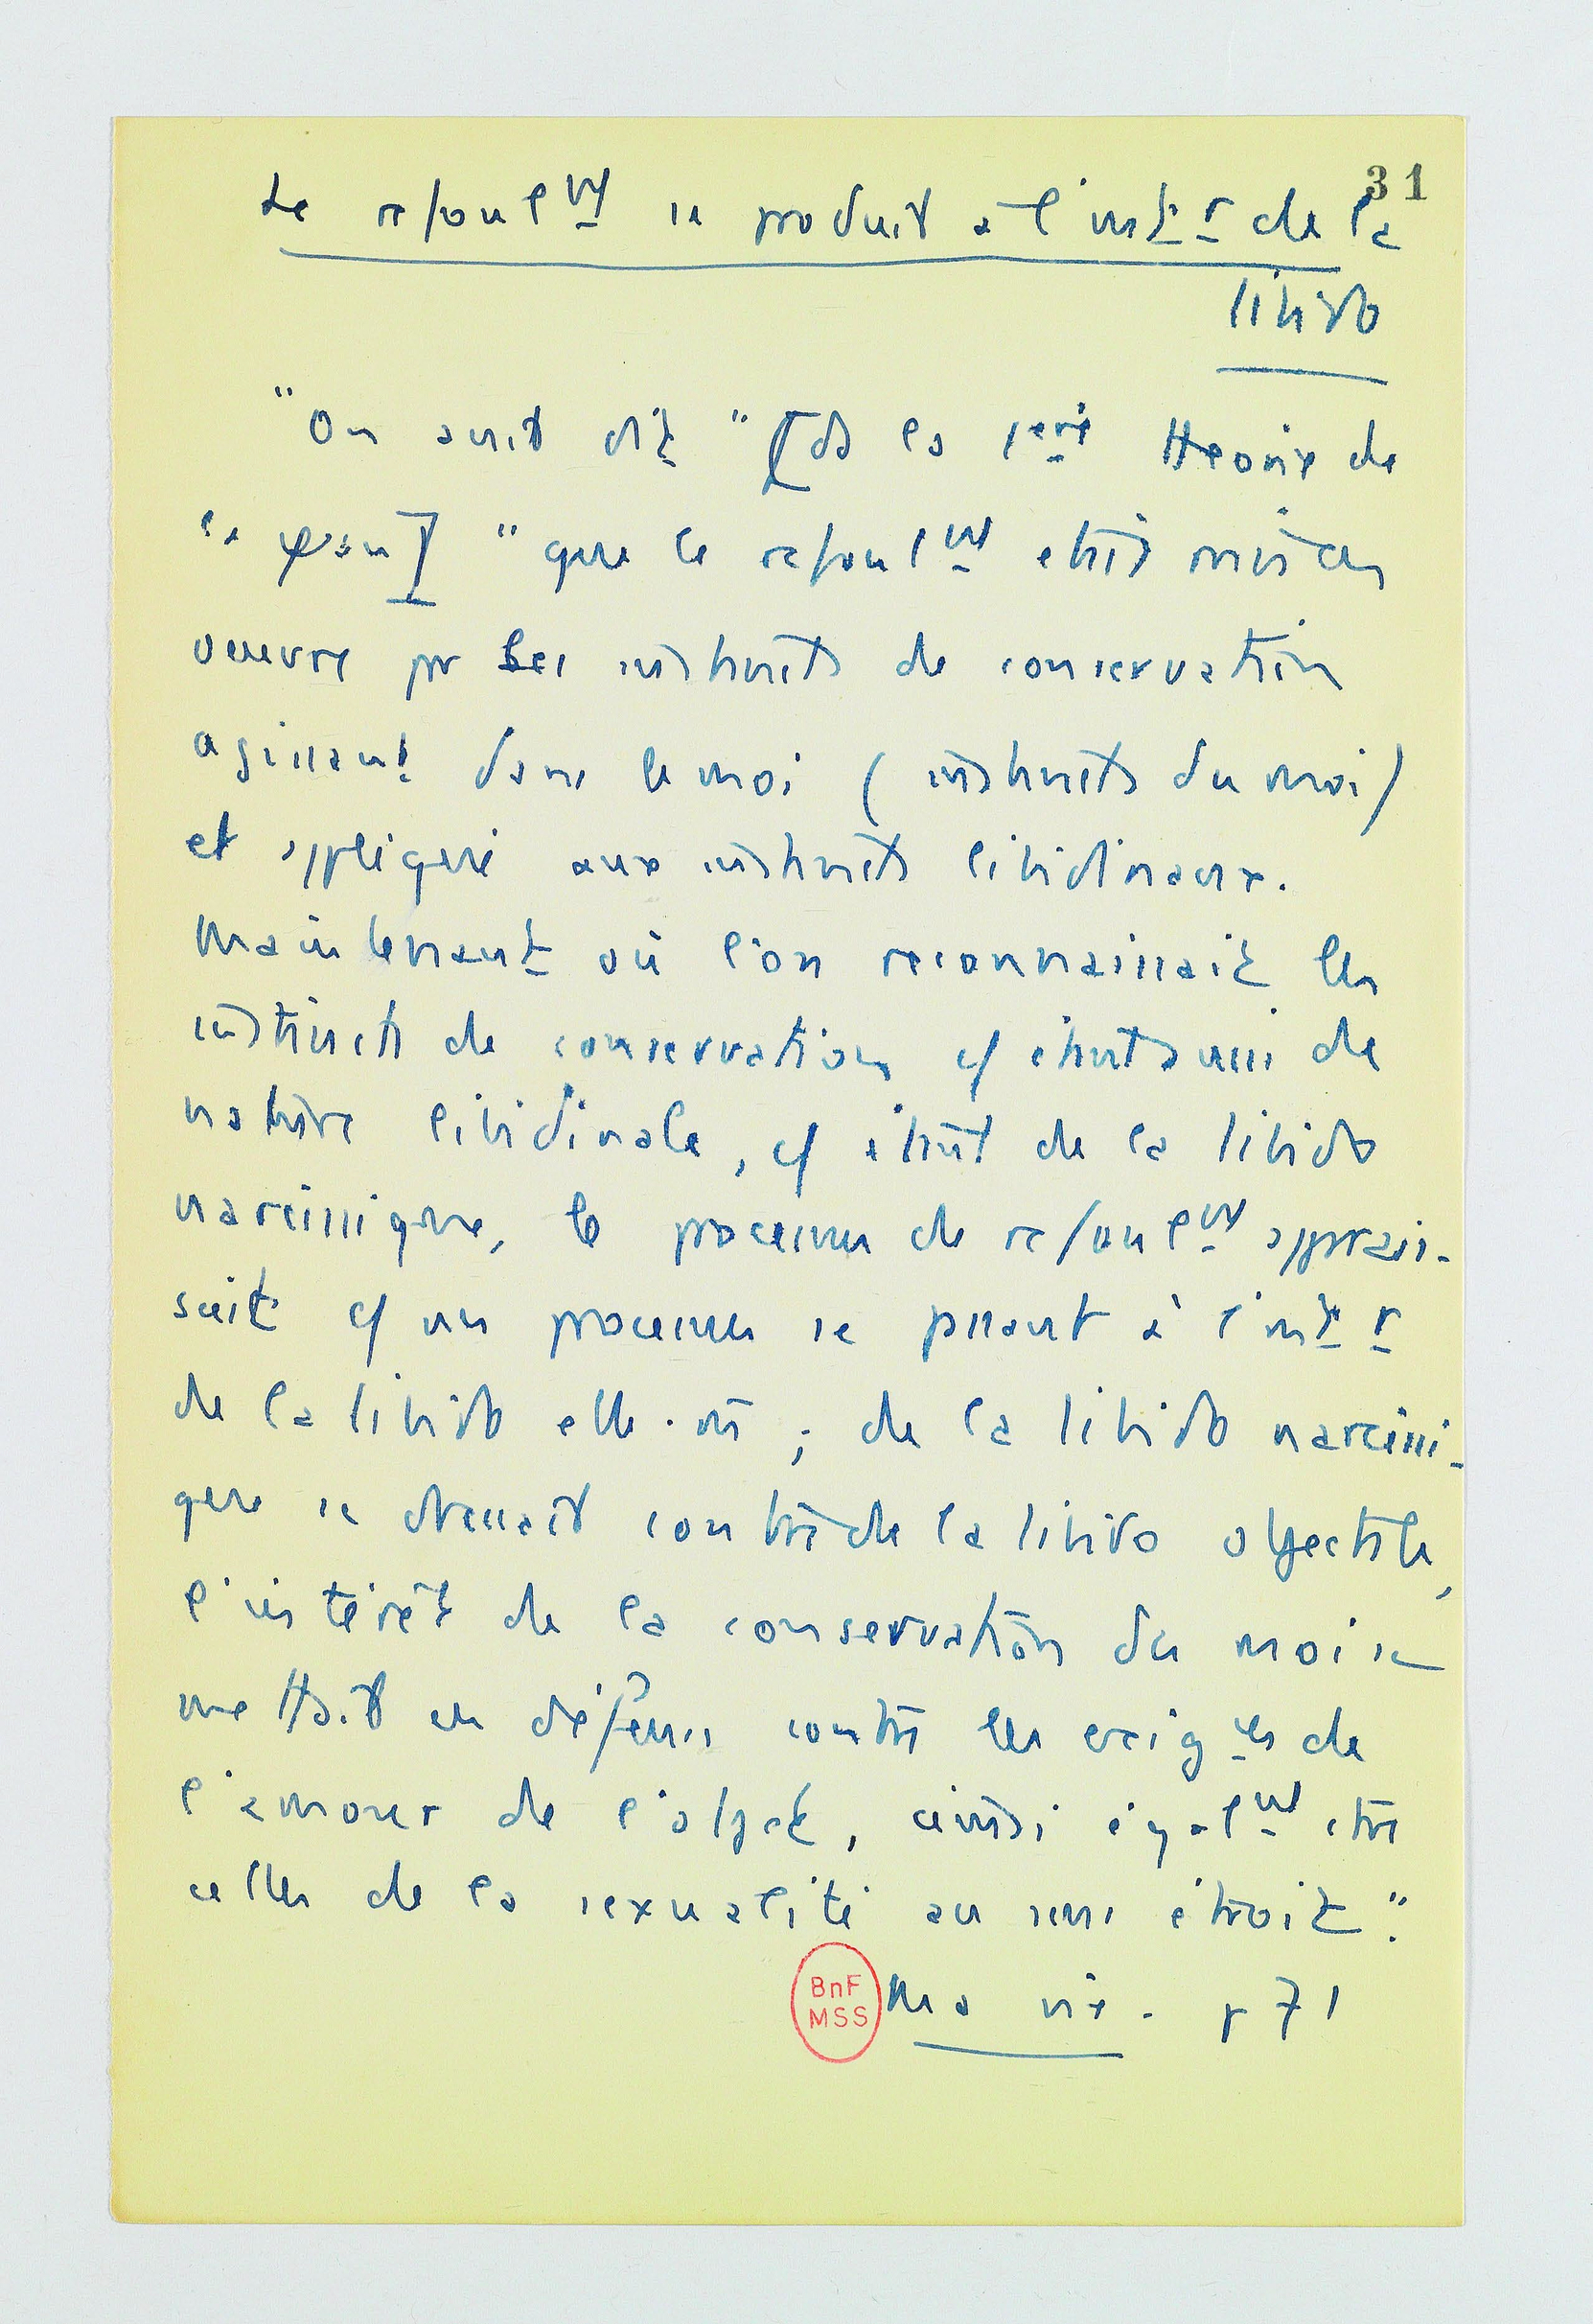 31
Le refoul^mt se produit à l'int^r de la
libido
"On avait dit" [ds la 1ère théorie de
la ψan] "que le refoul^mt était mis en
oeuvre pr les instincts de conservation
agissant dans le moi (instincts du moi)
et appliqué aux instincts libidinaux.
Maintenant où l'on reconnaissait les
instincts de conservation cf étant aussi de
nature libidinale, cf étant de la libido
narcissique, le processus de refoul^mt apparais-
sait cf un processus se passant à l'int^r
de la libido elle-m̄ ; de la libido narcissi-
que se dressait contre de la libido objectale,
l'intérêt de la conservation du moi se
mettait en défense contre les exig^ces de
l'amour de l'objet, ainsi égal^mt
celles de la sexualité au sens étroit".
BnF
MSS
Ma vie. p 71